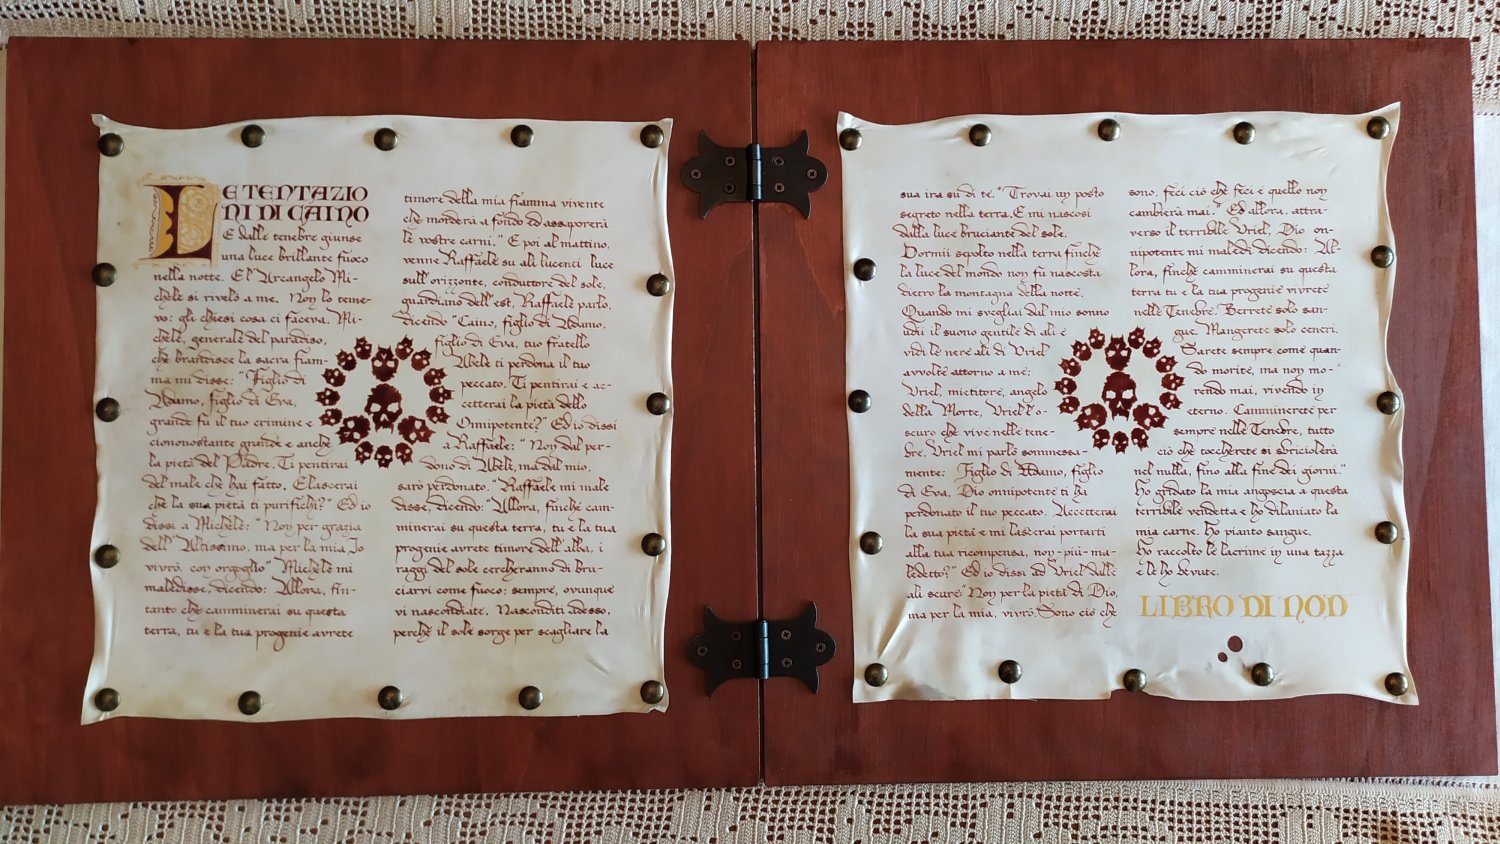 LE TENTAZIO
NI DI CAINO
E dalle tenebre giunse
una luce brillante fuoco
nella notte. E l'Arcangelo Mi-
chele si rivelò a me. Non lo teme-
vo: gli chiesi cosa ci faceva. Mi-
chele, generale del paradiso,
che brandisce la sacra fiam-
ma mi disse: "Figlio di
Adamo, figlio di Eva,
grande fu il tuo crimine e
ciononostante grande e anche
la pietà del Padre. Ti pentirai
del male che hai fatto. E lascerai
che la sua pietà ti purifichi?" Ed io
dissi a Michele: "Non per grazia
dell'Altissimo, ma per la mia, Io
vivrò, con orgoglio" Michele mi
maledisse, dicendo: Allora, fin-
tanto che camminerai su questa
terra, tu e la tua progenie avrete
timore della mia fiamma vivente
che morderà a fondo ed assaporerà
le vostre carni." E poi al mattino,
venne Raffaele su ali lucenti luce
sull'orizzonte, conduttore del sole,
guardiano dell'est, Raffaele parlò,
dicendo "Caino, figlio di Adamo,
figlio di Eva, tuo fratello
Abele ti perdona il tuo
peccato. Ti pentirai e ac-
cetterai la pietà dello
Omnipotente?" Ed io dissi
a Raffaele: "Non dal per-
dono di Abele, ma dal mio,
sarò perdonato." Raffaele mi male
disse, dicendo: "Allora, finché cam-
minerai su questa terra, tu e la tua
progenie avrete timore dell'alba, i
raggi del sole cercheranno di bru-
ciarvi come fuoco; sempre, ovunque
vi nascondiate. Nasconditi adesso,
perché il sole sorge per scagliare la
sua ira su di te." Trovai un posto
segreto nella terra. E mi nascosi
dalla luce bruciante del sole.
Dormii sepolto nella terra finché
la luce del mondo non fu nascosta
dietro la montagna della notte.
Quando mi svegliai dal mio sonno
udii il suono gentile di ali e
vidi le nere ali di Uriel
avvolte attorno a me;
Uriel, mietitore, angelo
della Morte, Uriel l'o-
scuro che vive nelle tene-
bre. Uriel mi parlò sommessa-
mente: Figlio di Adamo, figlio
di Eva, Dio onnipotente ti ha
perdonato il tuo peccato. Accetterai
la sua pietà e mi lascerai portarti
alla tua ricompensa, non-più-ma-
ledetto?" Ed io dissi ad Uriel dalle
ali scure: "Non per la pietà di Dio,
ma per la mia, vivrò. Sono ciò che
sono, feci ciò che feci e quello non
cambierà mai." Ed allora, attra-
verso il terribile Uriel, Dio on-
nipotente mi maledì dicendo: Al-
lora, finché camminerai su questa
terra tu e la tua progenie vivrete
nelle Tenebre. Berrete solo san-
gue. Mangerete solo ceneri.
Sarete sempre come quan-
do morite, ma non mo-
rendo mai, vivendo in
eterno. Camminerete per
sempre nelle Tenebre, tutto
ciò che toccherete si sbriciolerà
nel nulla, fino alla fine dei giorni."
Ho gridato la mia angoscia a questa
terribile vendetta e ho dilaniato la
mia carne. Ho pianto sangue.
Ho raccolto le lacrime in una tazza
e le ho bevute.
LIBRO DI NOD